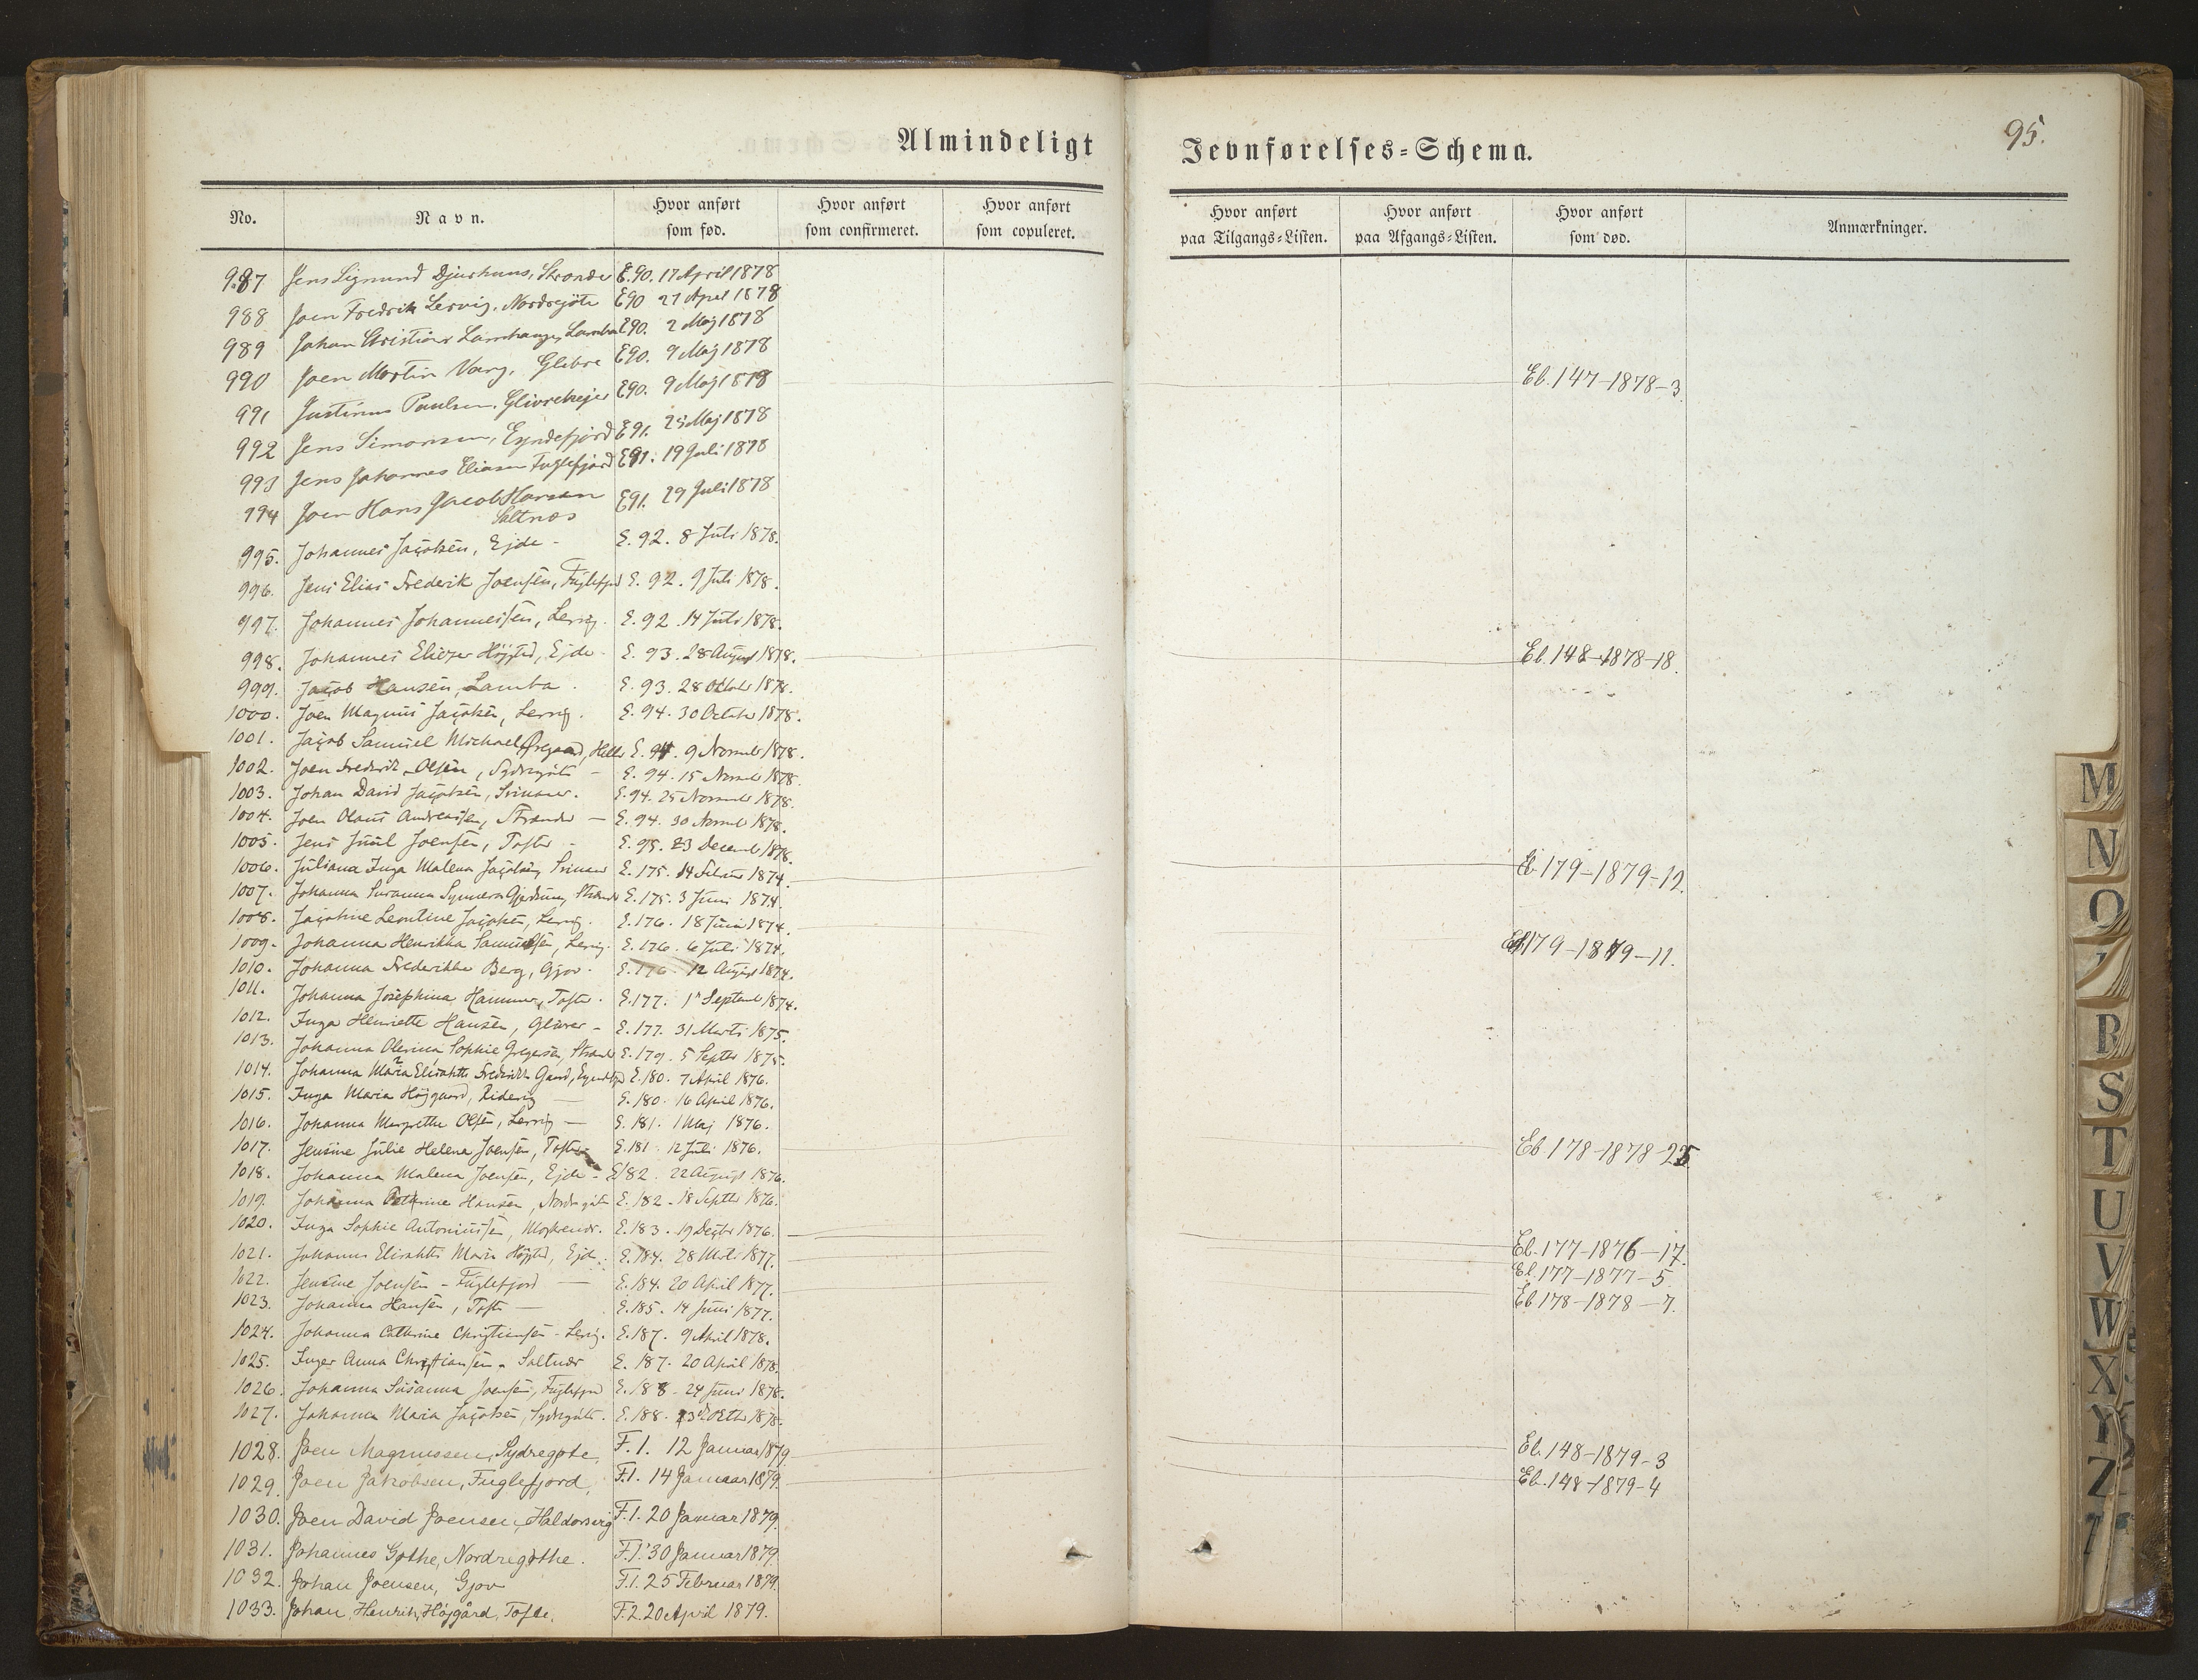 Almindeligt Jevnførelses=Schema.
95.
No. Navn. Hvor anført som fød. Hvor anført som confirmeret. Hvor anført som copuleret. Hvor anført paa Tilgangs=Listen. Hvor anført paa Afgangs=Listen. Hvor anført som død. Anmærkninger.
987 Jens Sigmund Djurhuus, Strander E.90. 17 April 1878
988 Joen Fredrik Lervig, Nordregöte E90 27 April 1878
989 Johan Christian Lamhauge, Lamba E90. 2 Maj 1878
990 Joen Martin Vang, Glibre E90. 9 Maj 1878 Eb. 147-1878-3.
991 Justinus Paulsen, E90. 9 Maj 1878
992 Jens Simonsen, Eyndefjord E91. 25 Maj 1878
993 Jens Johannes Eliasen Fuglefjord E91. 19 Juli 1878
994 Joen Hans Jacob Hansen E91. 29 Juli 1878
Saltnæs
995. Johannes Jacobsen, Ejde - E. 92. 8 Juli 1878.
996. Jens Elias Frederik Joensen, Fuglefjord E. 92. 9 Juli 1878.
997. Johannes Johannessen, Lervig. E. 92. 14 Juli 1878.
998. Johannes Eliezer Højsted, Ejde - E. 93. 28 August 1878. Eb. 148-1878-18.
999. Jacob Hansen, Lamba. E. 93. 28 Oktober 1878.
1000. Joen Magnus Jacobsen, Lervig. E. 94. 30 October 1878.
1001. Jacob Samuel Michael Øregaard, Heller E. 94. 9 November 1878.
1002. Joen Frederik Olsen, Sydregøte - E. 94. 15 November 1878.
1003. Johan David Jacobsen, Svinaaer. E. 94. 25 November 1878.
1004. Joen Olaus Andreassen, Strander - E. 94. 30 November 1878.
1005. Jens Juul Joensen, Tofter - E. 95. 23 December 1878.
1006. Juliana Inga Malena Jacobsen, Svinaaer E. 175. 14 Februar 1874. Eb 179-1879-12.
1007. Johanna Susanna Sunneva Gjerdum, Strander E. 175. 3 Juni 1874.
1008. Jacobine Leontine Jacobsen, Lervig. E. 176. 18 Juni 1874.
1009. Johanna Henrikka Samuelsen, Lervig. E. 176. 6 Juli 1874. Eb. 179-1879-11.
1010. Johanna Frederikke Berg, Gjov. E. 176. 12 August 1874.
1011. Johanna Josephina Hammer, Tofter. E. 177. 1 September 1874.
1012. Inga Henriette Hansen, Glivrer - E. 177. 31 Marts 1875.
1013. Johanna Olevina Sophie Gregersen, Strander E. 179. 5 Septbr 1875.
1014. Johanna Maria Elisabeth Fredrikke Gaard, Eyndefjord E. 180. 7 April 1876.
1015. Inga Maria Højgaard, Ridevig - E. 180. 16 April 1876.
1016. Johanna Margrethe Olsen, Lervig - E. 181. 1 Maj 1876.
1017. Jensine Julie Helene Joensen, Tofter E. 181. 12 Juli 1876. Eb 178-1878-25
1018. Johanna Malena Joensen, Ejde - E 182. 22 August 1876.
1019. Johanna Petrine Hansen, Nordregøte E. 182. 18 Septbr 1876.
1020. Inga Sophie Antoniussen, Morkenør. E. 183. 19 Decbr 1876. Eb. 177-1876-17.
1021. Johanne Elisabeth Maria Højsted, Ejde. E. 184. 28 Marts 1877. Eb. 177-1877-5.
1022. Jensine Joensen - Fuglefjord - E. 184. 20 April 1877. Eb 178-1878-7.
1023. Johanna Hansen, Tofte - E. 185. 14 Juni 1877.
1024. Johanna Cathrine Christiansen - Lervig. E. 187. 9 April 1878.
1025. Inger Anna Christiansen - Saltnæs E. 187. 20 April 1878.
1026. Johanna Susanna Joensen, Fuglefjord E. 188. 24 Juni 1878.
1027. Johanna Maria Jacobsen, Sydregøte. E. 188. 23 Octbr 1878.
1028. Joen Magnussen, Sydregøte. F. 1. 12 Januar 1879. Eb. 148-1879-3
1029. Joen Jakobsen, Fuglefjord. F.1. 14 Januar 1879. Eb. 148-1879-4
1030. Joen David Joensen, Haldorsvig F.1. 20 Januar 1879.
1031. Johannes Gøthe, Nordregøthe. F.1. 30 Januar 1879.
1032. Johan Joensen, Gjov F.1. 25 Februar 1879.
1033. Johan Henrik Højgård, Tofte. F.2. 20 April 1879.
M
N
O
R
S
T
U
V
W
X
Y
Z